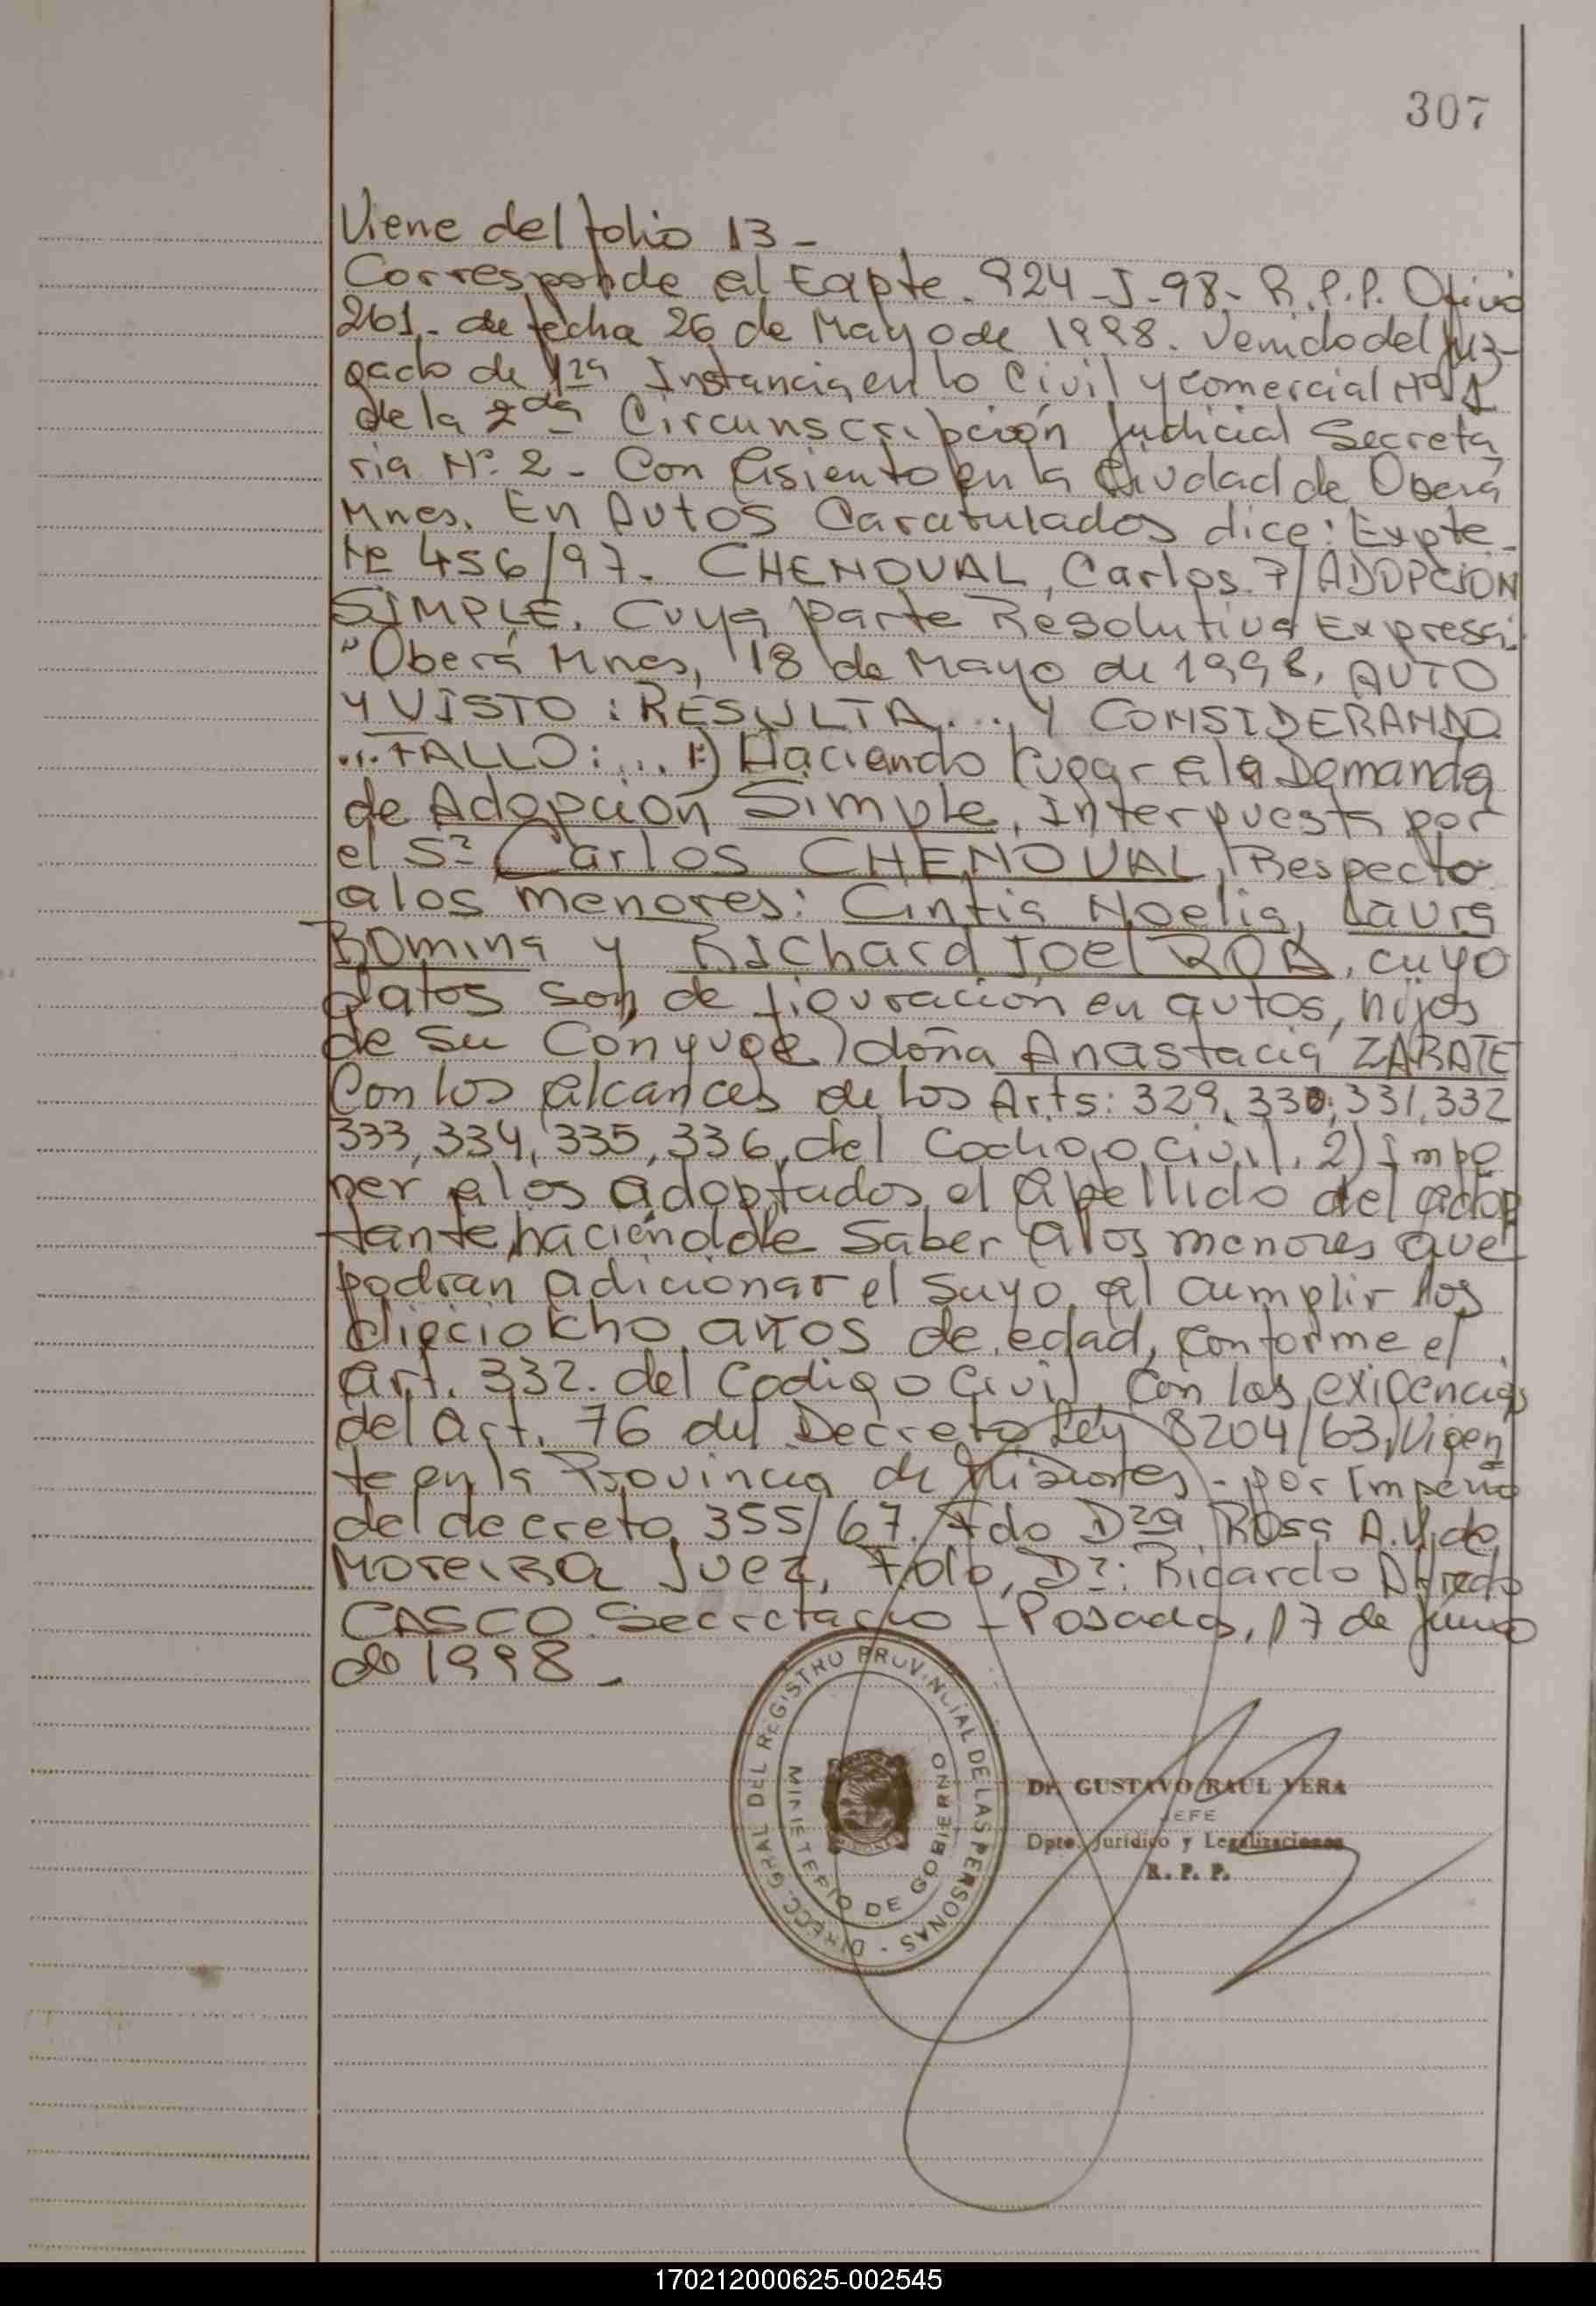 307
Viene del folio 13 -
Corresponde al Expte. 924-J-98- R.P.P. Oficio
261. de fecha 26 de Mayo de 1998. Venido del Juz-
gado de 1ra Instancia en lo Civil y comercial Nº 1
de la 2da Circunscripción Judicial Secreta
ria Nº 2 - Con Asiento en la Ciudad de Oberá
Mnes. En Autos Caratulados dice: Expte
Nº 456/97. CHENOVAL, Carlos. P/ ADOPCION
SIMPLE. Cuya parte Resolutiva Expresa:
"Oberá Mnes, 18 de Mayo de 1998. AUTO
Y VISTO: RESULTA... Y CONSIDERANDO
... FALLO: ... 1) Haciendo lugar a la Demanda
de Adopción Simple, Interpuesta por
el Sr Carlos CHENOVAL, Respecto
a los menores: Cintia Noelia, Laura
Romina y Richard Joel ROA, cuyo
datos son de figuración en autos, hijos
de su Cónyuge doña Anastacia ZARATE
Con los alcances de los Arts: 329, 330, 331, 332
333, 334, 335, 336, del Codigo Civil. 2) Impo
ner a los adoptados el apellido del adop
tante, haciéndole saber a los menores que
podran adicionar el suyo al cumplir los
dieciokho años de edad, conforme el
art. 332. del Codigo Civil Con las exigencias
del art. 76 del Decreto Ley 8204/63, Vigen
te en la Provincia de Misiones - por Imperio
del decreto 355/67. Fdo Dra Rosa A. V. de
MoreiRa Juez, Fdo, Dr: Ricardo Alfredo
CASCO Secretario - Posadas, 17 de Junio
de 1998 -
DIRECC. GRAL DEL REGISTRO PROVINCIAL DE LAS PERSONAS -
MINISTERIO DE GOBIERNO
MISIONES
Dr. GUSTAVO RAUL VERA
JEFE
Dpto. Jurídico y Legalizaciones
R. P. P.
170212000625-002545